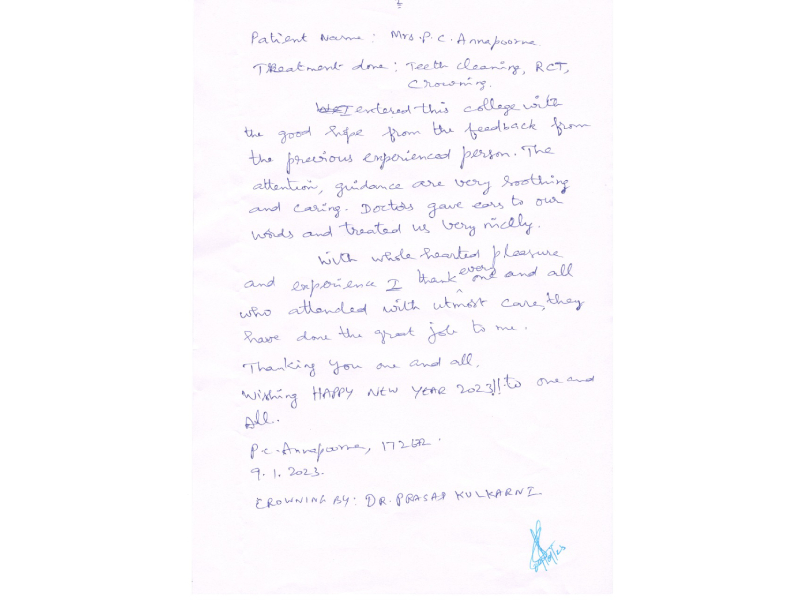 Patient Name : Mrs. P. C. Annapoorna
Treatment done : Teeth cleaning, RCT,
Crowning.
I entered this college with
the good hope from the feedback from
the previous experienced person. The
attention, guidance are very soothing
and caring. Doctors gave ears to our
words and treated us very nicely.
With whole hearted pleasure
and experience I thank every one and all
who attended with utmost care, they
have done the great job to me.
Thanking you one and all.
Wishing HAPPY NEW YEAR 2023!! to one and
all..
P.C. Annapoorna,
9.1.2023.
CROWNING BY: DR. PRASAD KULKARNI